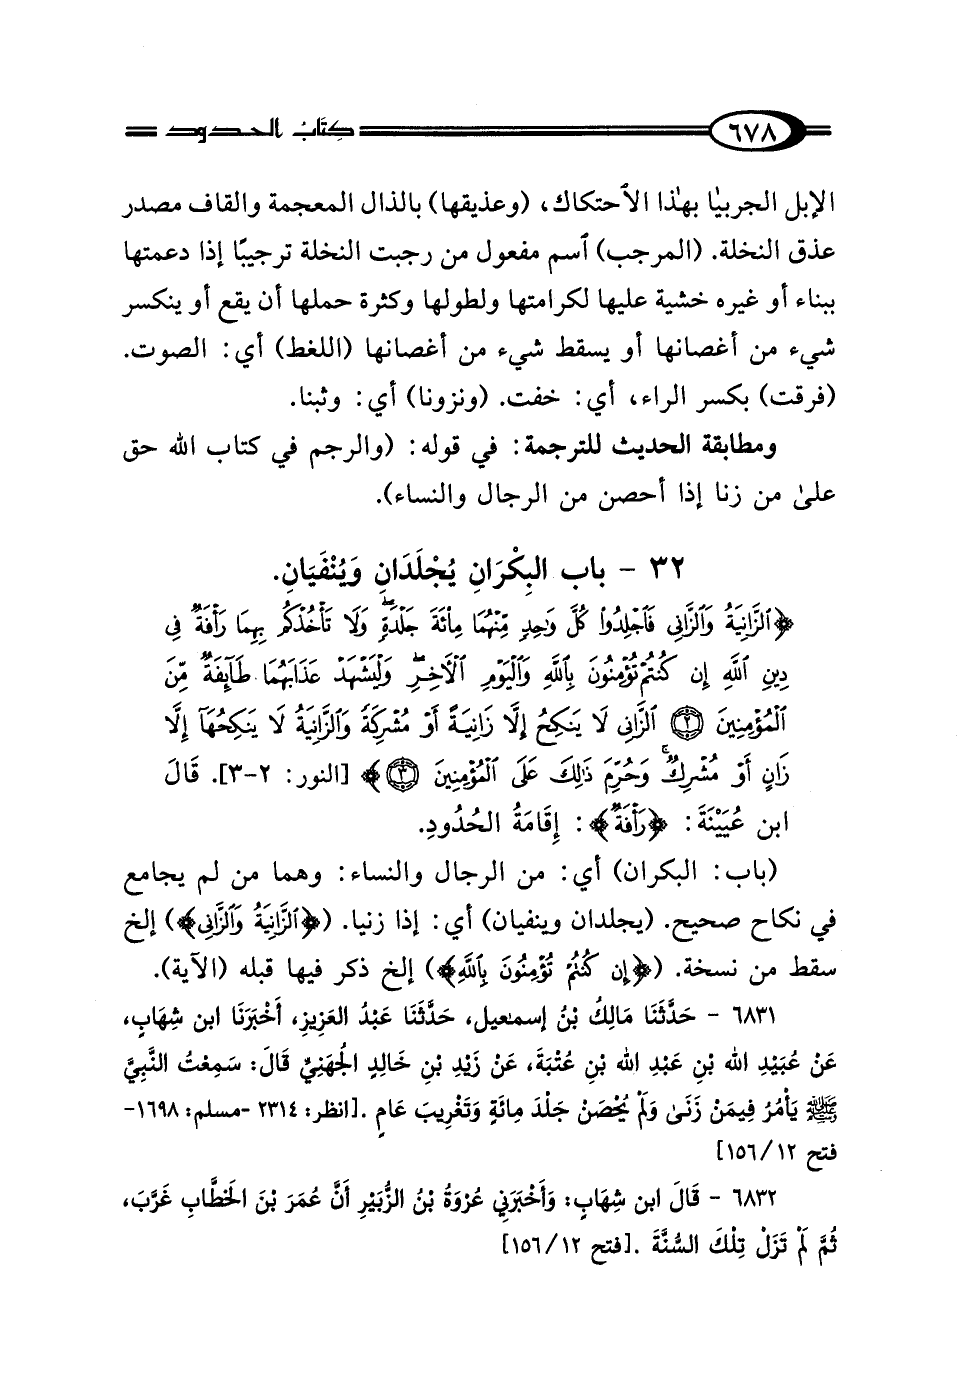 ٦٧٨ كتاب الحدود
الإبل الجربيا بهذا الاحتكاك، (وعذيقها) بالذال المعجمة والقاف مصدر
عذق النخلة. (المرجب) اسم مفعول من رجبت النخلة ترجيبًا إذا دعمتها
ببناء أو غيره خشية عليها لكرامتها ولطولها وكثرة حملها أن يقع أو ينكسر
شيء من أغصانها أو يسقط شيء من أغصانها (اللغط) أي: الصوت.
(فرقت) بكسر الراء، أي: خفت. (ونزونا) أي: وثبنا.
ومطابقة الحديث للترجمة: في قوله: (والرجم في كتاب الله حق
على من زنا إذا أحصن من الرجال والنساء).
٣٢ - باب البِكْرَانِ يُجْلَدَانِ وَيُنْفَيَانِ.
﴿ٱلزَّانِيَةُ وَٱلزَّانِي فَٱجْلِدُوا۟ كُلَّ وَٰحِدٍ مِّنْهُمَا مِا۟ئَةَ جَلْدَةٍۖ وَلَا تَأْخُذْكُم بِهِمَا رَأْفَةٌ فِي
دِينِ ٱللَّهِ إِن كُنتُمْ تُؤْمِنُونَ بِٱللَّهِ وَٱلْيَوْمِ ٱلْأَخِرِۖ وَلْيَشْهَدْ عَذَابَهُمَا طَآئِفَةٌ مِّنَ
ٱلْمُؤْمِنِينَ ۝٢ ٱلزَّانِي لَا يَنكِحُ إِلَّا زَانِيَةً أَوْ مُشْرِكَةً وَٱلزَّانِيَةُ لَا يَنكِحُهَآ إِلَّا
زَانٍ أَوْ مُشْرِكٌۚ وَحُرِّمَ ذَٰلِكَ عَلَى ٱلْمُؤْمِنِينَ ۝٣﴾ [النور: ٢-٣]. قَالَ
ابن عُيَيْنَةَ: ﴿رَأْفَةٌ﴾: إِقَامَةُ الحُدُودِ.
(باب: البكران) أي: من الرجال والنساء: وهما من لم يجامع
في نكاح صحيح. (يجلدان وينفيان) أي: إذا زنيا. (﴿ٱلزَّانِيَةُ وَٱلزَّانِي﴾) إلخ
سقط من نسخة. (﴿إِن كُنتُمْ تُؤْمِنُونَ بِٱللَّهِ﴾) إلخ ذكر فيها قبله (الآية).
٦٨٣١ - حَدَّثَنَا مَالِكُ بْنُ إسمعيل، حَدَّثَنَا عَبْدُ العَزِيزِ، أَخْبَرَنَا ابن شِهَابٍ،
عَنْ عُبَيْدِ الله بْنِ عَبْدِ الله بْنِ عُتْبَةَ، عَنْ زَيْدِ بْنِ خَالِدٍ الجُهَنِيِّ قَالَ: سَمِعْتُ النَّبِيَّ
ﷺ يَأْمُرُ فِيمَنْ زَنَى وَلَمْ يُحْصَنْ جَلْدَ مِائَةٍ وَتَغْرِيبَ عَامٍ .[انظر: ٢٣١٤ -مسلم: ١٦٩٨-
فتح ١٢/ ١٥٦]
٦٨٣٢ - قَالَ ابن شِهَابٍ: وَأَخْبَرَنِي عُرْوَةُ بْنُ الزُّبَيْرِ أَنَّ عُمَرَ بْنَ الخَطَّابِ غَرَّبَ،
ثُمَّ لَمْ تَزَلْ تِلْكَ السُّنَّةَ .[فتح ١٢/ ١٥٦]